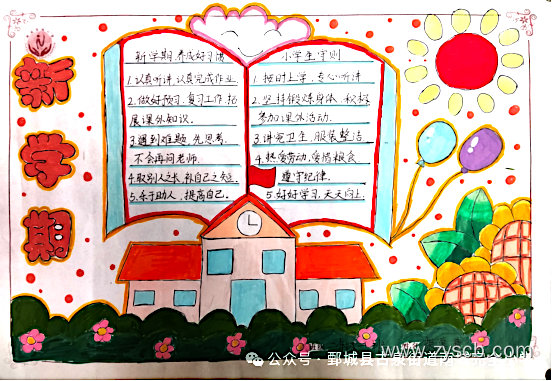 新
学
期
新学期 养成好习惯
1.认真听讲 认真完成作业
2.做好预习、复习工作,拓
展课外知识.
3.遇到难题,先思考,
不会再问老师.
4.取别人之长,补自己之短
5.乐于助人,提高自己.
小学生守则
1.按时上学,专心听讲
2.坚持锻炼身体,积极
参加课外活动.
3.讲究卫生,服装整洁
4.热爱劳动,爱惜粮食
遵守纪律.
5.好好学习,天天向上.
www.zyscb.com
公众号·鄄城县古泉街道